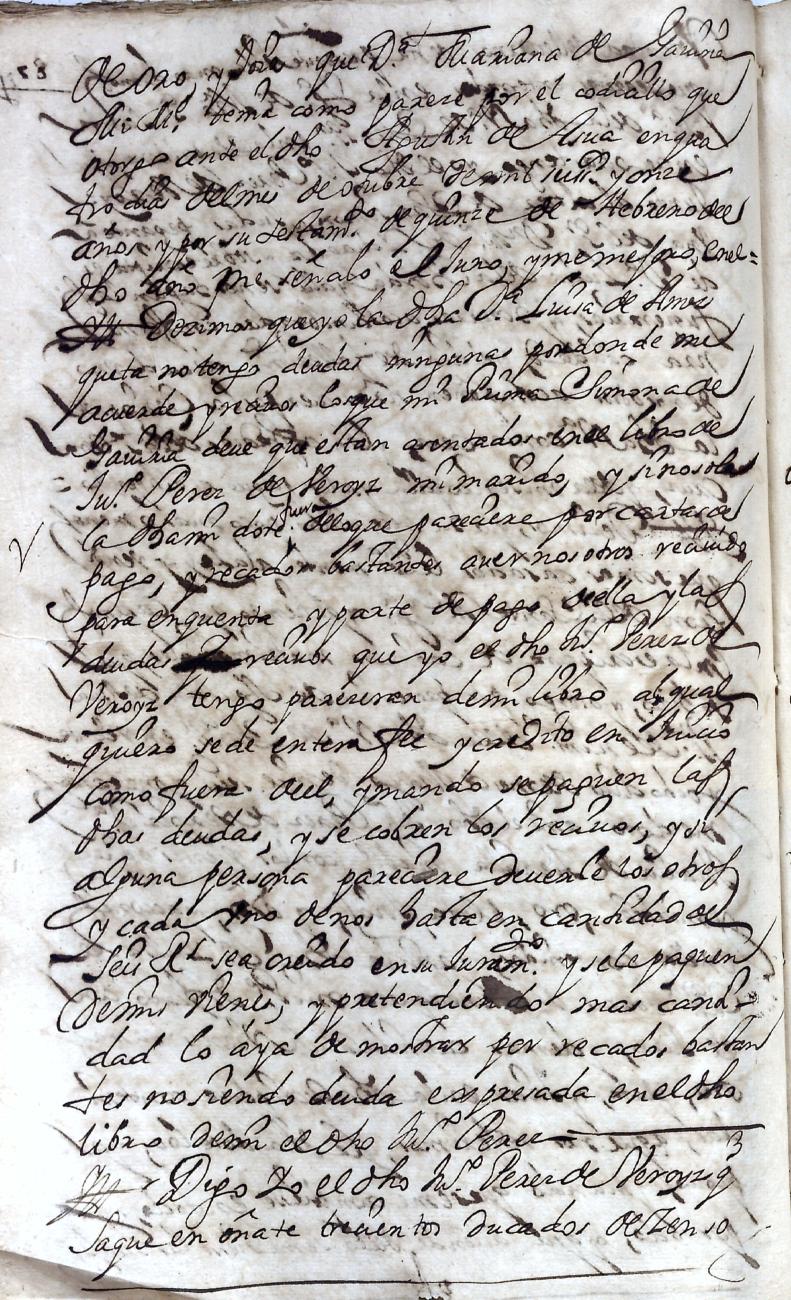 de oro, y Joia que D.ª Mariana de Gauiria
Mi tiª tenia como parece por el codicillo que
otorgo ante el dho Agustin de Asua en qua
tro dias del mes de otubre de mil seisº y onze
años y por su testamto de quinze de Hebrero del
dho año me señalo el Juro, y me mejoro, en el=
Dezimos que yo la dha D.ª Luisa de
queta no tengo deudas ningunas por donde me
acuerde, y reciuos los que mi Prima Simona de
Gauiria deue que estan asentados en el libro de
Juº Perez de Veroyz mi marido, y sino sola
la dha mi dote fuera de lo que pareciere por cartas de
pago, y recados bastantes auer nosotros reciuido
para en quenta y parte de pago della y las
deudas y reciuos que yo el dho Juº Perez de
Veroyz tengo pareceran de mi libro al qual
quiero se de entera fee y credito en Juicio
como fuera del, y mando se paguen las
dhas deudas, y se cobren los reciuos, y si
alguna persona pareciere deuerle los otros
y cada vno de nos hasta en cantidad de
seis Rs sea creido en su Juramto. y se le paguen
de mis vienes, y pretendiendo mas canti-
dad lo aya de mostrar por recados bastan
tes no siendo deuda expresada en el dho
libro de mi el dho Juº Perez
Digo Yo el dho Juº Perez de Veroyz q
saque en oñate trecientos ducados de zenso